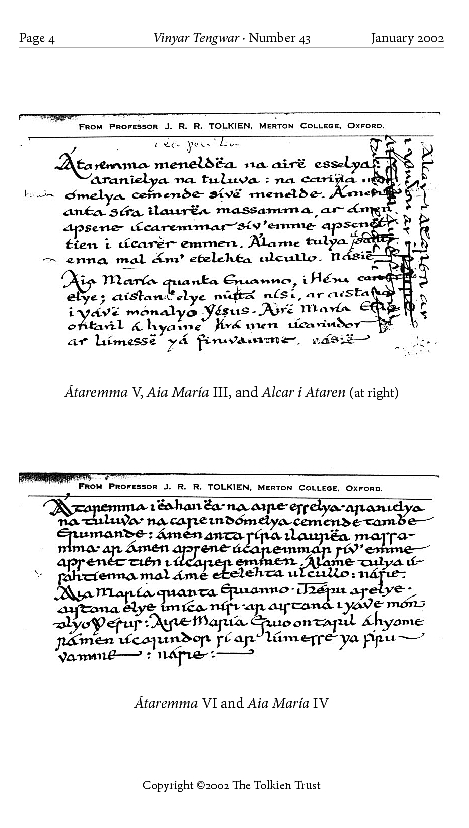 Page 4 Vinyar Tengwar · Number 43 January 2002
From Professor J. R. R. TOLKIEN, Merton College, Oxford.
Átaremma meneldëa na airë esselya
aranielya na tuluva : na carina
ómelya cemende sivë menelde. Ámen
anta síra ilaurëa massamma, ar ámen
apsene úcaremmar siv' emme apsenet
tien i úcarer emmen. Álame tulya
enna mal ám' etelehta ulcullo. násië
Aia María quanta Eruanno, i Héru
elye; aistana elye nísi, ar aistana
i yávë mónalyo Yésus. Airë María
ontaril á hyame rá men úcarindor
ar lúmesse yá firuvamme. násië
Alcar i Ataren ar
Átaremma V, Aia María III, and Alcar i Ataren (at right)
From Professor J. R. R. TOLKIEN, Merton College, Oxford.
Átaremma i ëa han ëa · na aire esselya · aranielya
na tuluva · na care indómelya cemende tambe
Erumande : ámen anta síra ilaurëa massa-
mma · ar ámen apsene úcaremmar siv' emme
apsenet tien i úcarer emmen. Álame tulya ú-
sahtienna mal áme etelehta ulcullo : násie :
Aia María quanta Eruanno · i Héru aselye ·
aistana elye imíca nísi · ar aistana i yáve món-
alyo Yésus : Aire María Eruo ontaril á hyame
rámen úcarindor sí ar lúmesse ya firu-
vamme : násie :
Átaremma VI and Aia María IV
Copyright ©2002 The Tolkien Trust